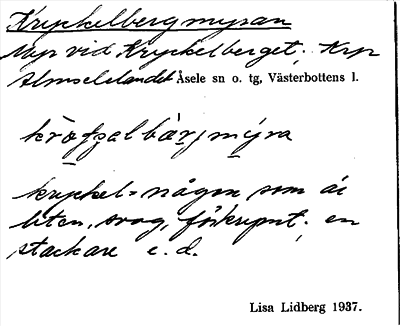 Krypkelbergmyran
Myr vid Krypkelberget. Krp
Almselelandet Åsele sn o. tg, Västerbottens l.
krypkel = någon som är
liten, svag, förkrympt. en
stackare e. d.
Lisa Lidberg 1937.